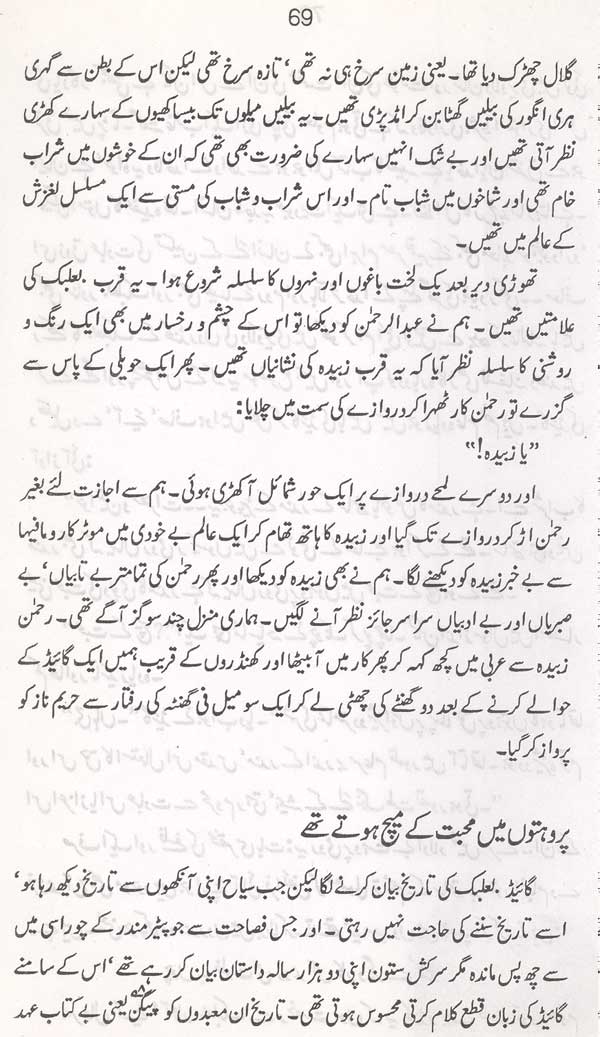 69
گلال چھڑک دیا تھا۔ یعنی زمین سرخ ہی نہ تھی، تازہ سرخ تھی لیکن اس کے بطن سے گہری
ہری انگور کی بیلیں گھٹا بن کر امڈ پڑی تھیں۔ یہ بیلیں میلوں تک بیساکھیوں کے سہارے کھڑی
نظر آتی تھیں اور بے شک انہیں سہارے کی ضرورت بھی تھی کہ ان کے خوشوں میں شراب
خام تھی اور شاخوں میں شباب تام۔ اور اس شراب و شباب کی مستی سے ایک مسلسل لغزش
کے عالم میں تھیں۔
تھوڑی دیر بعد یک لخت باغوں اور نہروں کا سلسلہ شروع ہوا۔ یہ قرب بعلبک کی
علامتیں تھیں۔ ہم نے عبدالرحمٰن کو دیکھا تو اس کے چشم و رخسار میں بھی ایک رنگ و
روشنی کا سلسلہ نظر آیا کہ یہ قرب زبیدہ کی نشانیاں تھیں۔ پھر ایک حویلی کے پاس سے
گزرے تو رحمٰن کار ٹھہرا کر دروازے کی سمت میں چلایا:
”یا زبیدہ!“
اور دوسرے لمحے دروازے پر ایک حور شمائل آ کھڑی ہوئی۔ ہم سے اجازت لئے بغیر
رحمٰن اڑ کر دروازے تک گیا اور زبیدہ کا ہاتھ تھام کر ایک عالم بے خودی میں موٹر کار و مافیہا
سے بے خبر زبیدہ کو دیکھنے لگا۔ ہم نے بھی زبیدہ کو دیکھا اور پھر رحمٰن کی تمام تر بے تابیاں، بے
صبریاں اور بے ادبیاں سراسر جائز نظر آنے لگیں۔ ہماری منزل چند سو گز آگے تھی۔ رحمٰن
زبیدہ سے عربی میں کچھ کہہ کر پھر کار میں آ بیٹھا اور کھنڈروں کے قریب ہمیں ایک گائیڈ کے
حوالے کرنے کے بعد دو گھنٹے کی چھٹی لے کر ایک سو میل فی گھنٹہ کی رفتار سے حریم ناز کو
پرواز کر گیا۔
پروہتوں میں محبت کے میچ ہوتے تھے
گائیڈ بعلبک کی تاریخ بیان کرنے لگا لیکن جب سیاح اپنی آنکھوں سے تاریخ دیکھ رہا ہو،
اسے تاریخ سننے کی حاجت نہیں رہتی۔ اور جس فصاحت سے جوپیٹر مندر کے چوراسی میں
سے چھ پس ماندہ مگر سرکش ستون اپنی دو ہزار سالہ داستان بیان کر رہے تھے، اس کے سامنے
گائیڈ کی زبان قطع کلام کرتی محسوس ہوتی تھی۔ تاریخ ان معبدوں کو پیگن یعنی بے کتاب عہد